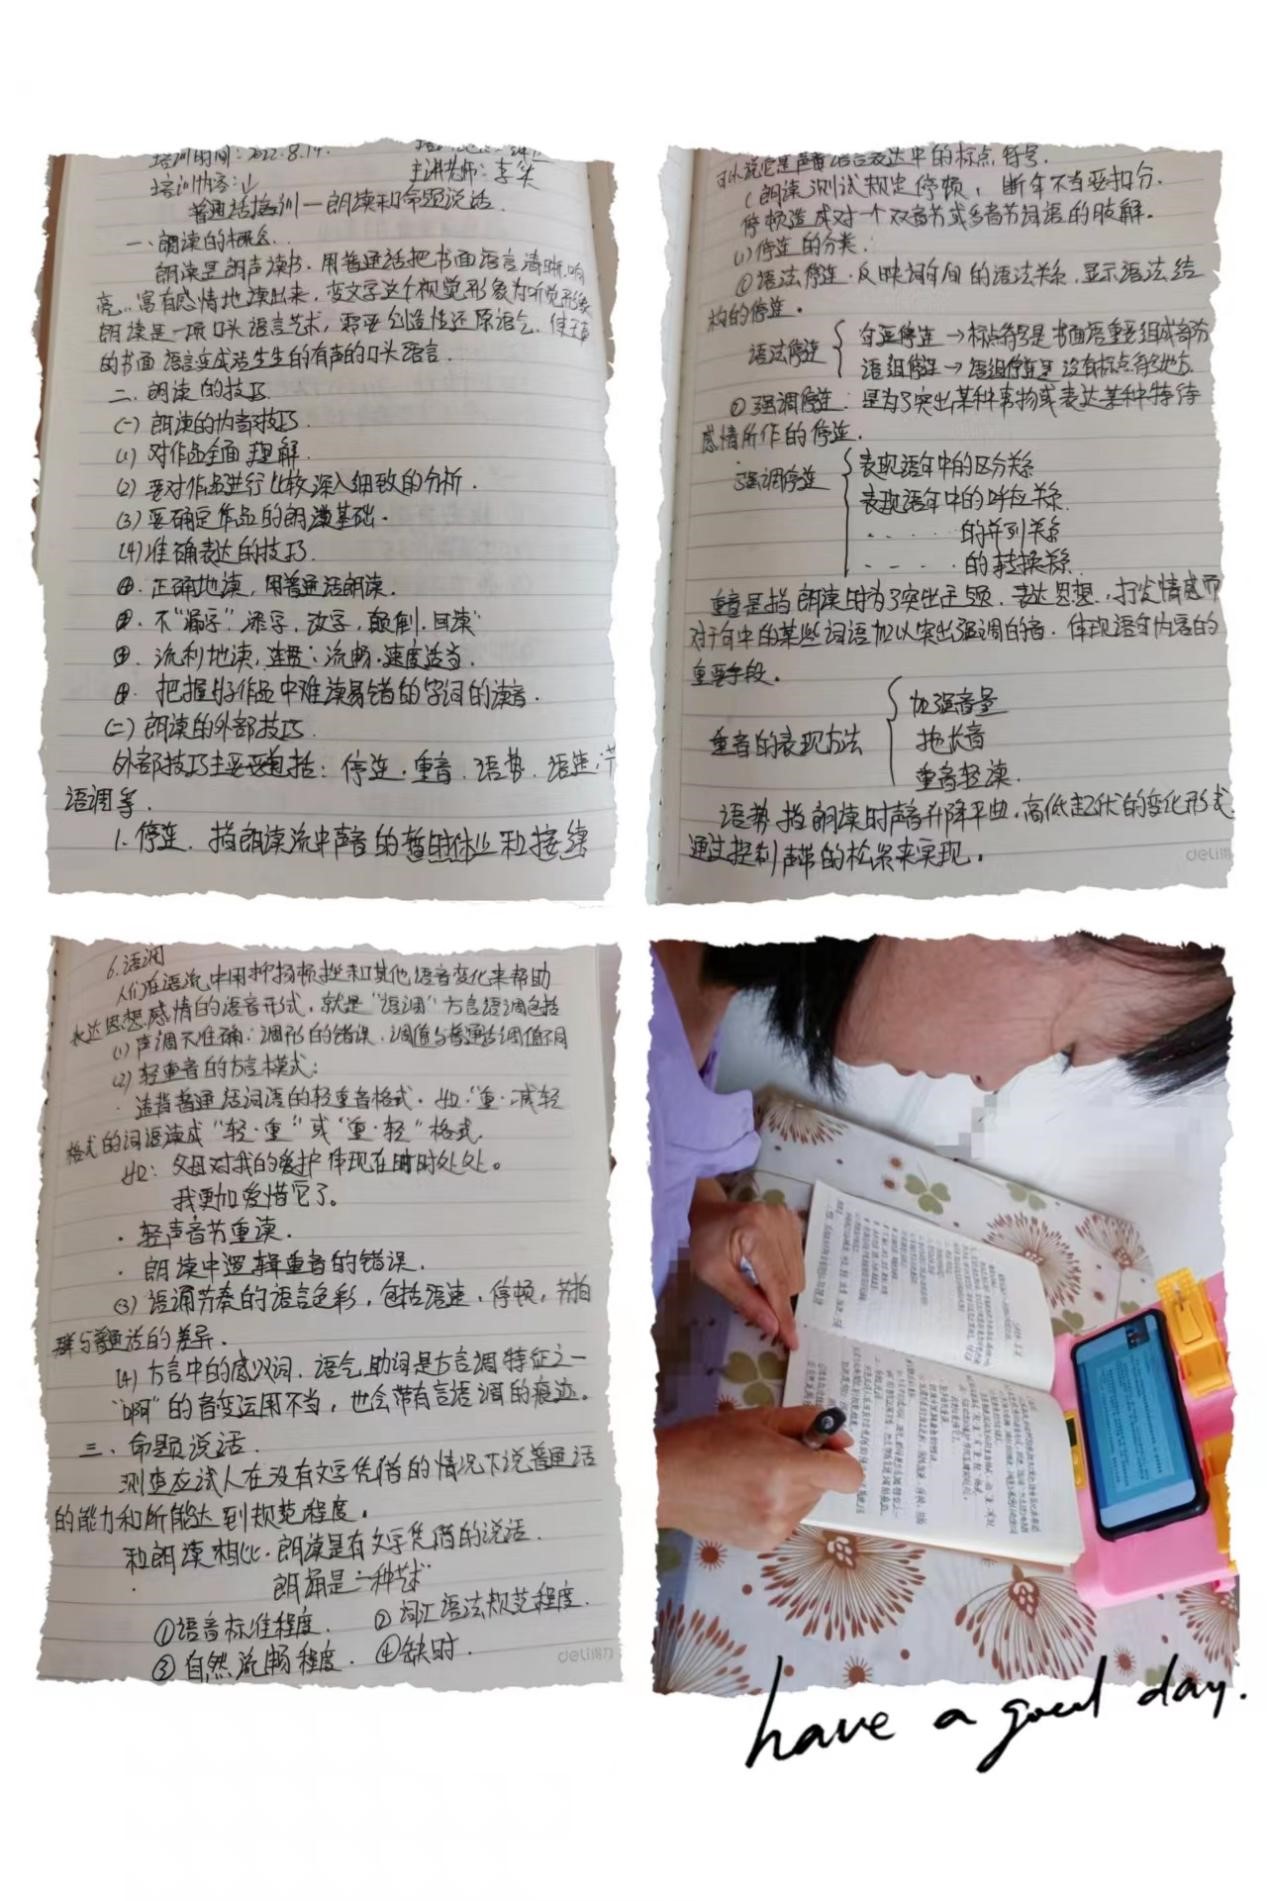 培训时间：2022.8.19.
培训内容：
主讲老师：李笑
普通话培训一朗读和命题说话.
一、朗读的概念.
朗读是朗声读书.用普通话把书面语言清晰.响
亮.富有感情地读出来,变文字这个视觉形象为听觉形象
朗读是一项口头语言艺术,需要创造性还原语气,使
的书面语言变成活生生的有声的口头语言.
二、朗读的技巧
(一)朗读的内部技巧.
(1)对作品全面理解.
(2)要对作品进行比较深入细致的分析.
(3)要确定作品的朗读基础.
(4)准确表达的技巧.
正确地读,用普通话朗读.
不"漏字".添字,改字,颠倒.回读"
流利地读,连贯;流畅.速度适当.
把握好作品中难读易错的字词的读音.
(二)朗读的外部技巧.
外部技巧主要包括：停连.重音.语势.语速:节
语调等.
1.停连.指朗读流中声音的暂时休止和接续
可以说它是声音语言表达中的标点符号.
(朗读测试规定停顿,断句不当要扣分.
停顿造成对一个双音节或多音节词语的肢解.
(1)停连的分类.
①语法停连.反映词句间的语法关系.显示语法结
构的停连.
语法停连 { 句逗停连→标点符号是书面语重要组成部分
语组停连→语组停连是没有标点符号地方.
②强调停连：是为了突出某种事物或表达某种特待
感情所作的停连.
强调停连 { 表现语句中的区分关系
表现语句中的呼应关系.
......的并列关系
.....的转换关系.
重音是指朗读时为了突出主题.表达思想.,抒发情感而
对于句中的某些词语加以突出强调的音.体现语句内容的
重要手段.
重音的表现方法 { 加强音量
拖长音
重音轻读.
语势指朗读时声音升降平曲,高低起伏的变化形式
通过控制声带的松紧来实现.
deli得
6.语调
人们在语流中用抑扬顿挫和其他语音变化来帮助
表达思想感情的语音形式,就是"语调"方言语调包括
(1)声调不准确:调形的错误.调值与普通话调值不同
(2)轻重音的方言模式：
·违背普通话词语的轻重音格式.如:"重·减轻
格式的词语读成"轻·重"或"重·轻"格式.
如：父母对我的爱护体现在时时处处。
我更加爱惜它了。
·轻声音节重读.
·朗读中逻辑重音的错误.
(3)语调节奏的语言色彩,包括语速.停顿,节拍
群与普通话的差异.
(4)方言中的感叹词.语气助词是方言调特征之一
"啊"的音变运用不当,也会带有言语调的痕迹.
三、命题说话.
测查应试人在没有文字凭借的情况下说普通话
的能力和所能达到规范程度.
和朗读相比.朗读是有文字凭借的说话.
朗诵是一种艺术
①语音标准程度. ②词汇语法规范程度.
③自然流畅程度. ④缺时.
deli得力
have a good day.